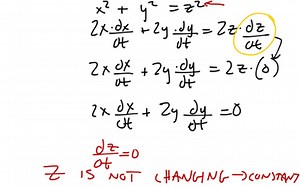 x² + y² = z² ←
2x·dx/dt + 2y·dy/dt = 2z·dz/dt
2x dx/dt + 2y·dy/dt = 2z·(0)
2x dx/dt + 2y dy/dt = 0
dz/dt = 0
Z IS NOT CHANGING → CONSTANT